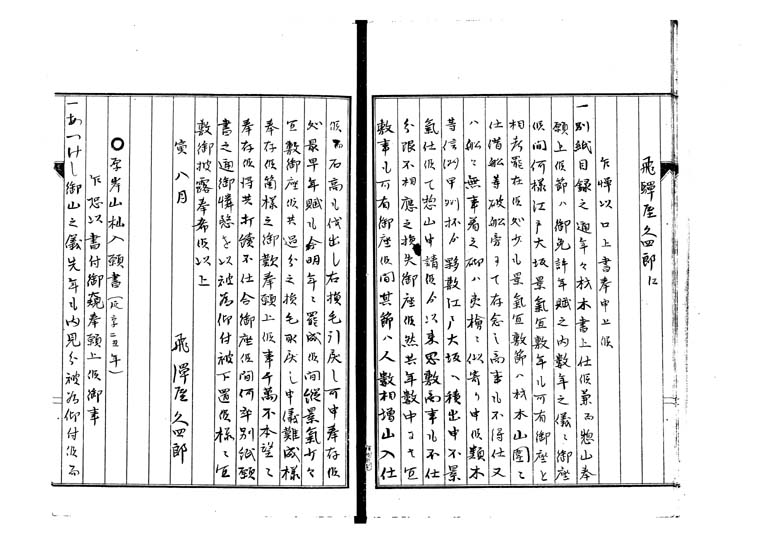 飛騨屋久四郎江
乍憚以口上書奉申上候
一別紙目録之通年々材木書上仕候兼而惣山奉
願上候節ハ御免許年賦之内数年之儀ニ御座
候間何様江戸大坂景気宜敷年も可有御座と
相考罷在候処少も景気宜敷節ハ材木山園ニ
仕借船等破船寄ニて存念之高事も不得仕又
ハ船々無事着之砌ハ夷檜ニ似寄り申候類木
等信州甲州杯より夥敷江戸大坂へ積出申不景
気仕候て惣山申請候より以来思敷高事も不仕
分限不相応之損失御座候然共年数中ニて宜
敷事も可有御座候間其節ハ人数相増山入仕
候而石高も伐出し右損毛引戻し可申奉存候
処最早年賦も今明年ニ罷成候間縦景気少々
宜敷御座候共過分之損毛取戻し申儀難成様
奉存候箇様之御歎奉願上候事千萬不本望ニ
奉存候得共打続不仕合御座候間何卒別紙願
書之通御憐愍を以被為仰付被下置候様ニ宜
敷御披露奉希候以上
寅八月
飛騨屋久四郎
○厚岸山杣入願書(延享二丑年)
乍恐以書付御窺奉願上候御事
一あつけし御山之儀先年も内見分被為仰付候而